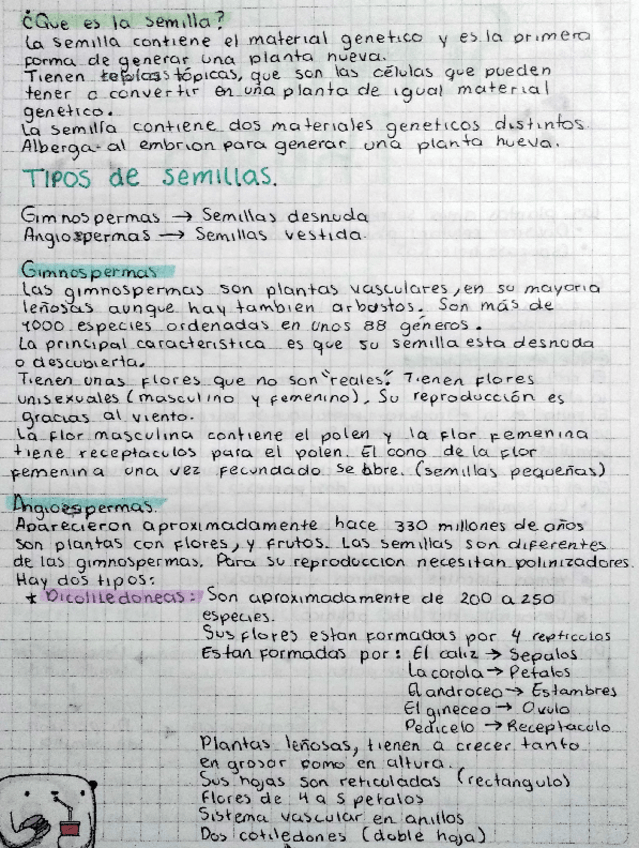 ¿Que es la semilla?
La semilla contiene el material genetico y es la primera
forma de generar una planta nueva.
Tienen tópicas, que son las células que pueden
tener a convertir en una planta de igual material
genetico.
La semilla contiene dos materiales geneticos distintos.
Alberga al embrion para generar una planta nueva.
Tipos de semillas.
Gimnospermas → Semillas desnuda
Angiospermas → Semillas vestida.
Gimnospermas
Las gimnospermas son plantas vasculares, en su mayoria
leñosas aunque hay tambien arbustos. Son más de
1000 especies ordenadas en unos 88 géneros.
La principal caracteristica es que su semilla esta desnuda
o descubierta.
Tienen unas flores que no son "reales". Tienen flores
unisexuales (masculino y femenino). Su reproducción es
gracias al viento.
La flor masculina contiene el polen y la flor femenina
tiene receptaculos para el polen. El cono de la flor
femenina una vez fecundado se abre. (semillas pequeñas)
Angioespermas.
Aparecieron aproximadamente hace 330 millones de años
son plantas con flores, y frutos. Las semillas son diferentes
de las gimnospermas. Para su reproduccion necesitan polinizadores.
Hay dos tipos:
* Dicotiledoneas: Son aproximadamente de 200 a 250
especies.
Sus flores estan formadas por 4 repticulos
Estan formadas por: El caliz → Sepalos
La corola → Petalos
El androceo → Estambres
El gineceo → Ovulo
Pedicelo → Receptaculo
Plantas leñosas, tienen a crecer tanto
en grosor como en altura.
Sus hojas son reticuladas (rectangulo)
Flores de 4 a 5 petalos
Sistema vascular en anillos
Dos cotiledones (doble hoja)